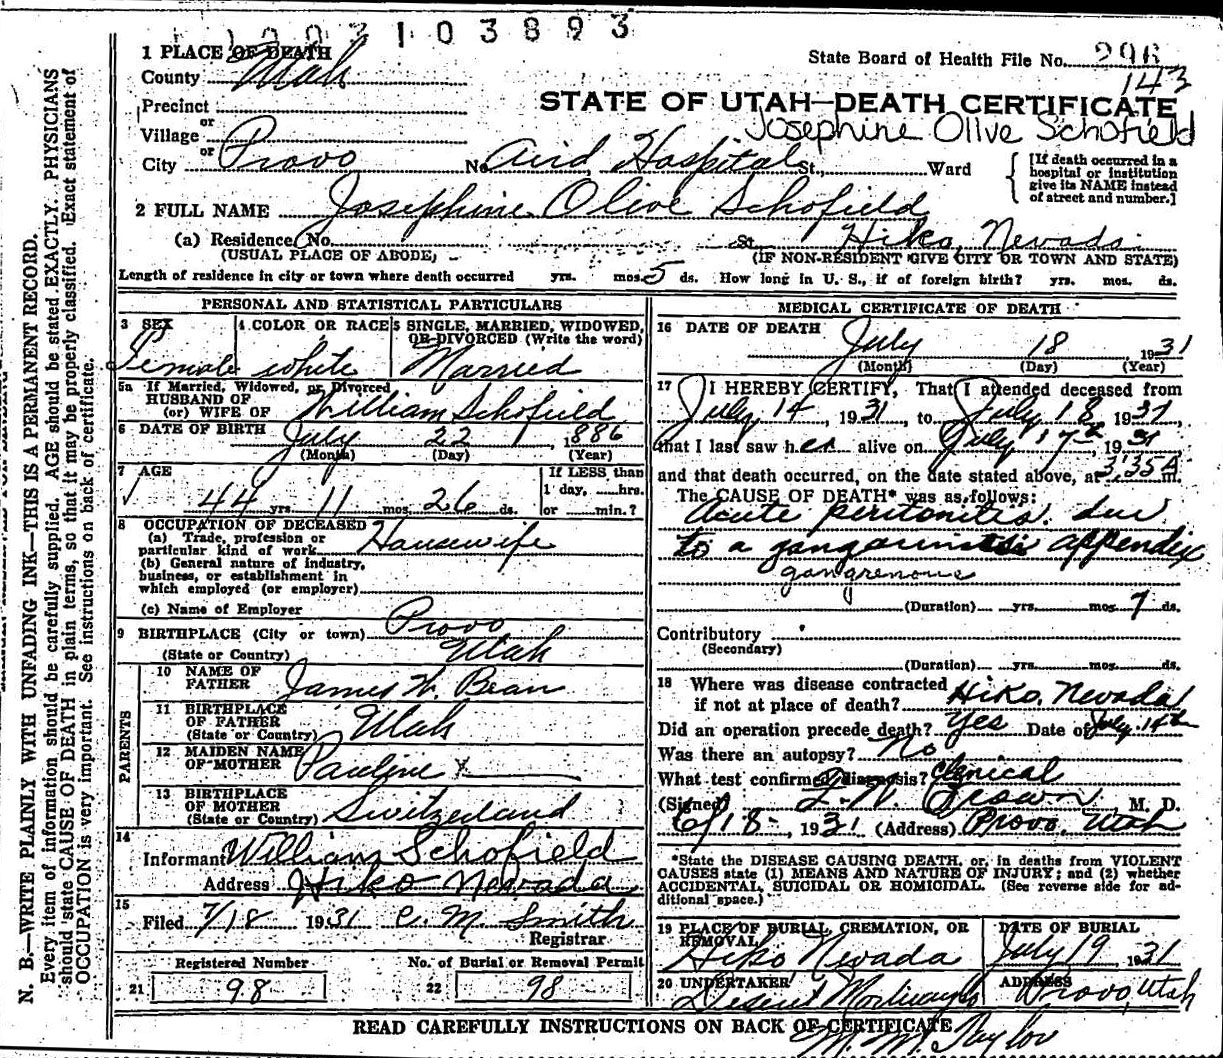 1003103893
1 PLACE OF DEATH
County Utah
State Board of Health File No. 296
143
Precinct
or
Village
or
City Provo
STATE OF UTAH—DEATH CERTIFICATE
Josephine Olive Schofield
No. Aird Hospital St., Ward
[If death occurred in a
hospital or institution
give its NAME instead
of street and number.]
2 FULL NAME Josephine Olive Schofield
(a) Residence, No. St. Hiko, Nevada.
(USUAL PLACE OF ABODE)
(IF NON-RESIDENT GIVE CITY OR TOWN AND STATE)
Length of residence in city or town where death occurred yrs. mos. 5 ds. How long in U. S., if of foreign birth? yrs. mos. ds.
PERSONAL AND STATISTICAL PARTICULARS
3 SEX
Female
4 COLOR OR RACE
white
5 SINGLE, MARRIED, WIDOWED,
OR DIVORCED (Write the word)
Married
5a If Married, Widowed, or Divorced
HUSBAND OF
(or) WIFE OF William Schofield
6 DATE OF BIRTH July 22 1886
(Month) (Day) (Year)
7 AGE
44 yrs. 11 mos. 26 ds.
If LESS than
1 day, hrs.
or min.?
8 OCCUPATION OF DECEASED
(a) Trade, profession or
particular kind of work Housewife
(b) General nature of industry,
business, or establishment in
which employed (or employer)
(c) Name of Employer
9 BIRTHPLACE (City or town) Provo
(State or Country) Utah
PARENTS
10 NAME OF
FATHER James W. Bean
11 BIRTHPLACE
OF FATHER
(State or Country) Utah
12 MAIDEN NAME
OF MOTHER Pauline x
13 BIRTHPLACE
OF MOTHER
(State or Country) Switzerland
14
Informant William Schofield
Address Hiko Nevada
15
Filed 7/18 1931 C. M. Smith
Registrar
Registered Number
21 98
No. of Burial or Removal Permit
22 98
MEDICAL CERTIFICATE OF DEATH
16 DATE OF DEATH July 18 1931
(Month) (Day) (Year)
17 I HEREBY CERTIFY, That I attended deceased from
July 14, 1931, to July 18, 1931
that I last saw her alive on July 17th, 1931
and that death occurred, on the date stated above, at 3:35 A m.
The CAUSE OF DEATH* was as follows:
Acute peritonitis due
to a appendix
gangrenous
(Duration) yrs. mos. 7 ds.
Contributory
(Secondary)
(Duration) yrs. mos. ds.
18 Where was disease contracted
if not at place of death? Hiko, Nevada
Did an operation precede death? Yes Date of July 14th
Was there an autopsy? No
What test confirmed diagnosis? Clenical
(Signed) Brown, M. D.
6/18, 1931 (Address) Provo, Utah
*State the DISEASE CAUSING DEATH, or, in deaths from VIOLENT
CAUSES state (1) MEANS AND NATURE OF INJURY; and (2) whether
ACCIDENTAL, SUICIDAL OR HOMICIDAL. (See reverse side for ad-
ditional space.)
19 PLACE OF BURIAL, CREMATION, OR
REMOVAL
Hiko, Nevada
DATE OF BURIAL
July 19 1931
20 UNDERTAKER
Deseret Mortuary
ADDRESS
Provo, Utah
READ CAREFULLY INSTRUCTIONS ON BACK OF CERTIFICATE
Taylor
N. B.—WRITE PLAINLY WITH UNFADING INK—THIS IS A PERMANENT RECORD.
Every item of information should be carefully supplied. AGE should be stated EXACTLY. PHYSICIANS
should state CAUSE OF DEATH in plain terms, so that it may be properly classified. Exact statement of
OCCUPATION is very important. See instructions on back of certificate.